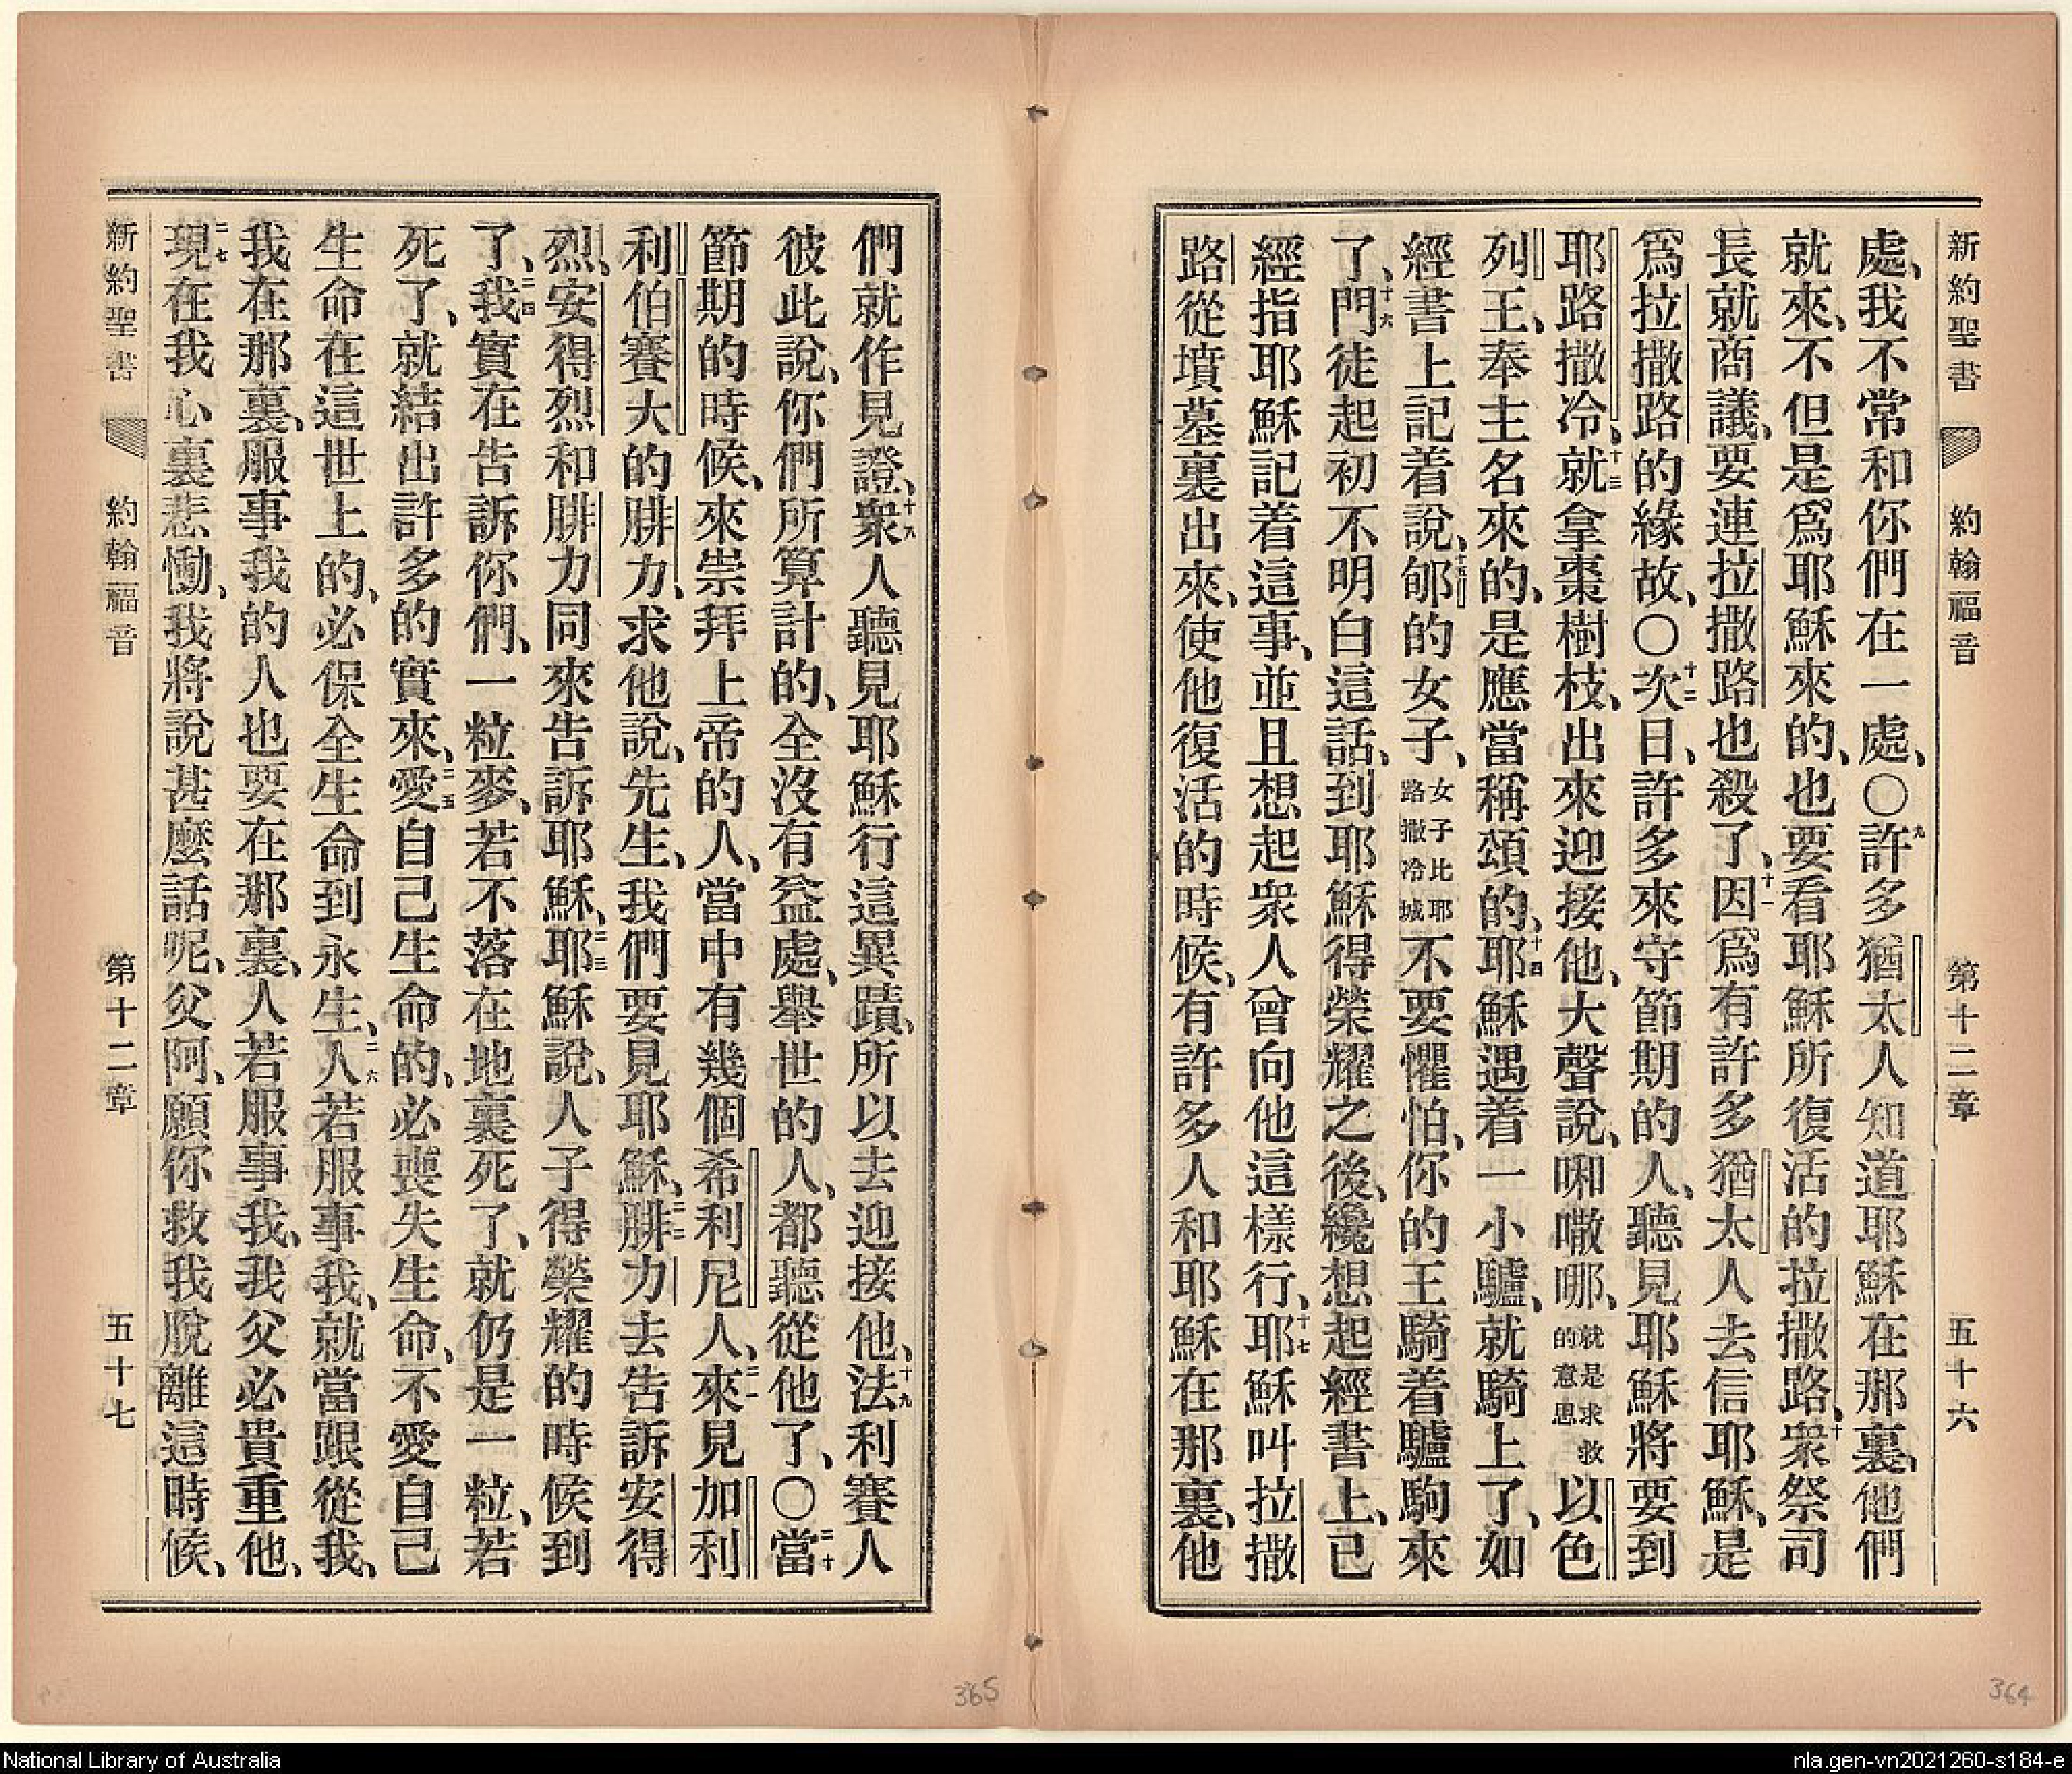 新約聖書 約翰福音 第十二章 五十六
處、我不常和你們在一處、〇九許多猶太人知道耶穌在那裏、他們
就來、不但是爲耶穌來的、也要看耶穌所復活的拉撒路、十衆祭司
長就商議、要連拉撒路也殺了、十一因爲有許多猶太人去信耶穌、是
爲拉撒路的緣故、〇十二次日、許多來守節期的人、聽見耶穌將要到
耶路撒冷、十三就拿棗樹枝、出來迎接他、大聲說、㗏𠾐哪、就是求救的意思以色
列王、奉主名來的、是應當稱頌的、十四耶穌遇着一小驢、就騎上了、如
經書上記着說、十五郇的女子、女子比耶路撒冷城不要懼怕、你的王騎着驢駒來
了、十六門徒起初不明白這話、到耶穌得榮耀之後、纔想起經書上、已
經指耶穌記着這事、並且想起衆人曾向他這樣行、十七耶穌叫拉撒
路從墳墓裏出來、使他復活的時候、有許多人和耶穌在那裏、他
們就作見證、十八衆人聽見耶穌行這異蹟、所以去迎接他、十九法利賽人
彼此說、你們所算計的、全沒有益處、舉世的人、都聽從他了、〇二十當
節期的時候、來崇拜上帝的人、當中有幾個希利尼人、二一來見加利
利伯賽大的腓力、求他說、先生、我們要見耶穌、二二腓力去告訴安得
烈、安得烈和腓力同來告訴耶穌、二三耶穌說、人子得榮耀的時候到
了、二四我實在告訴你們、一粒麥、若不落在地裏死了、就仍是一粒、若
死了、就結出許多的實來、二五愛自己生命的、必喪失生命、不愛自己
生命在這世上的、必保全生命到永生、二六人若服事我、就當跟從我、
我在那裏、服事我的人也要在那裏、人若服事我、我父必貴重他、
二七現在我心裏悲慟、我將說甚麼話呢、父阿、願你救我脫離這時候、
新約聖書 約翰福音 第十二章 五十七
365
364
National Library of Australia
nla.gen-vn2021260-s184-e